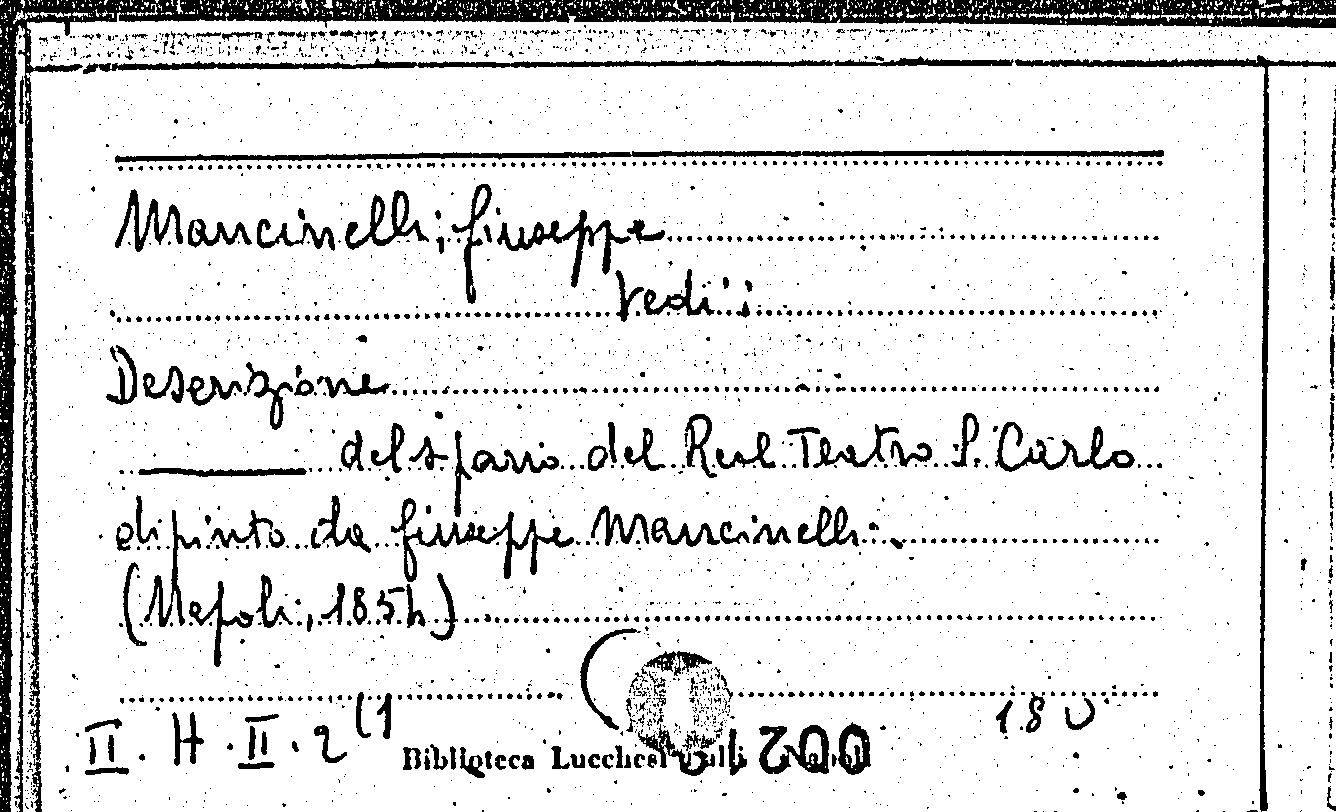 Mancinelli, Giuseppe
Vedi:
Descrizione
del sipario del Real Teatro S. Carlo
dipinto da Giuseppe Mancinelli.
(Napoli, 1854)
II. H. II. 2 (1
180
Biblioteca Lucchesi Palli